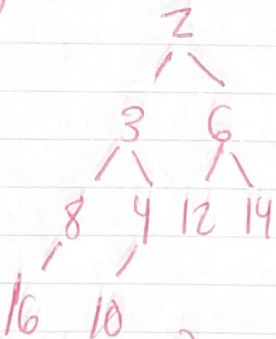 2
3 6
8 4 12 14
16 10